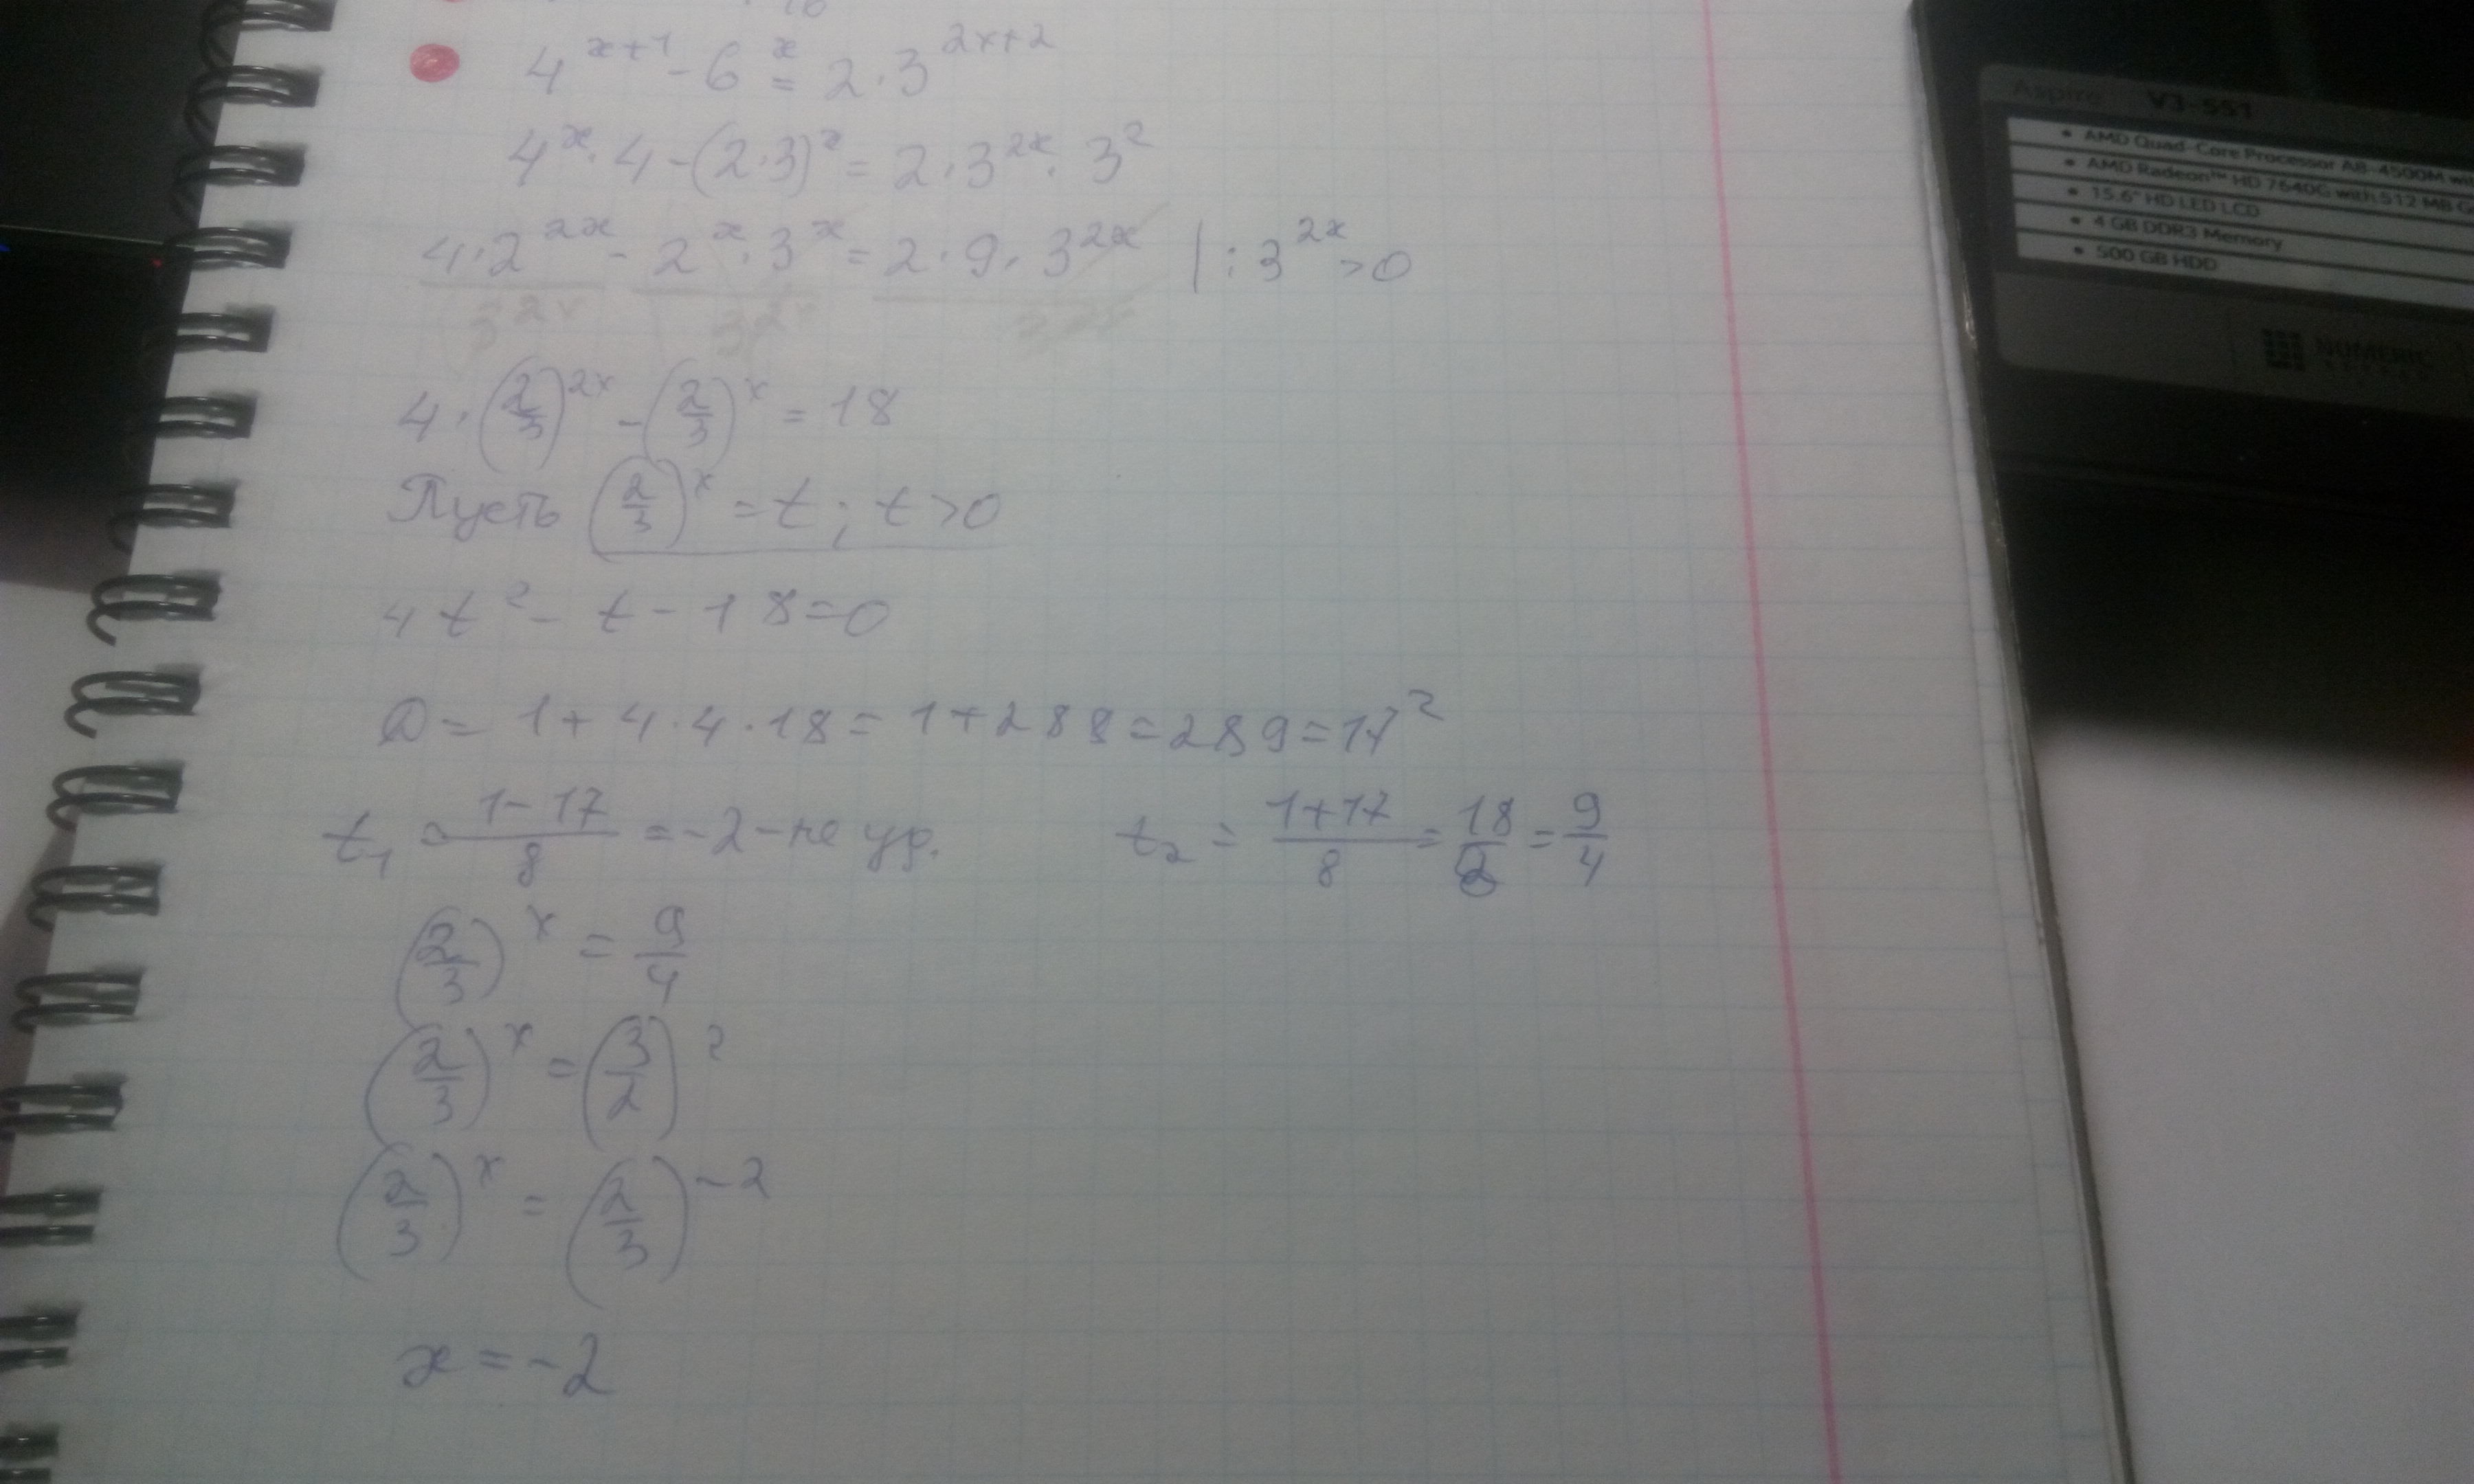 4^{x+1} - 6^x = 2 · 3^{2x+2}
4^x · 4 - (2·3)^x = 2 · 3^{2x} · 3^2
4 · 2^{2x} - 2^x · 3^x = 2 · 9 · 3^{2x} | : 3^{2x} > 0
3^{2x} 3^{2x} 3^{2x}
4 · (2/3)^{2x} - (2/3)^x = 18
Пусть (2/3)^x = t ; t > 0
4t^2 - t - 18 = 0
D = 1 + 4·4·18 = 1 + 288 = 289 = 17^2
t_1 = (1-17)/8 = -2 - не ур. t_2 = (1+17)/8 = 18/8 = 9/4
(2/3)^x = 9/4
(2/3)^x = (3/2)^2
(2/3)^x = (2/3)^{-2}
x = -2
Aspire V3-551
• AMD Quad-Core Processor A8-4500M
• AMD Radeon™ HD 7640G with 512 MB
• 15.6" HD LED LCD
• 4 GB DDR3 Memory
• 500 GB HDD
NUMERIC